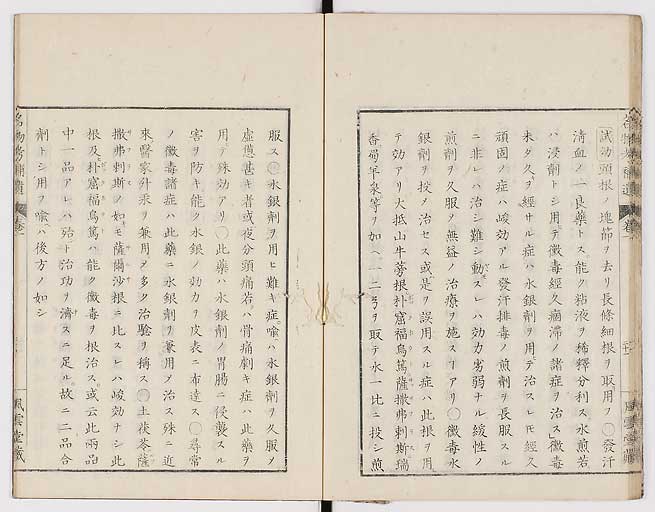 試効頭根ノ塊節ヲ去リ長條細根ヲ取用フ〇發汗
清血ノ一良藥トス能ク粘液ヲ稀釋分利ス水煎若
ハ浸劑トシ用テ黴毒經久痼滞ノ諸症ヲ治ス黴毒
未タ久ヲ經サル症ハ水銀劑ヲ用テ治スレモ經久
頑固ノ症ハ峻効アル發汗排毒ノ煎劑ヲ長服スル
ニ非レハ治シ難シ動スレハ効力劣弱ナル緩性ノ
煎劑ヲ久服ノ無益ノ治療ヲ施スヿアリ〇黴毒水
銀劑ヲ投メ治セス或是ヲ誤用スル症ハ此根ヲ用
テ効アリ大抵山牛蒡根朴窟福烏篤薩撒弗剌斯瑞
香蜀羊泉等ヲ加ヘ一二弓ヲ取テ水一比ニ投シ煎
服ス〇水銀劑ヲ用ヒ難キ症喩ハ水銀劑ヲ久服ノ
虚憊甚キ者或夜分頭痛若ハ骨痛劇キ症ハ此藥ヲ
用テ殊効アリ〇此藥ハ水銀劑ノ胃腸ニ侵襲スル
害ヲ防キ能ク水銀ノ効力ヲ皮表ニ布達ス〇尋常
ノ黴毒諸症ハ此藥ニ水銀劑ヲ兼用メ治ス殊ニ近
來醫家升汞ヲ兼用メ多ク治驗ヲ稱ス〇土茯苓薩
撒弗剌斯ノ如モ薩爾沙根ニ比スレハ峻効ナシ此
根及朴窟福烏篤ハ能ク黴毒ヲ根治ス或云此兩品
中一品アレハ殆ト治功ヲ濟スニ足ル故ニ二品合
劑トシ用ヲ喩ハ後方ノ如シ
風雲堂藏